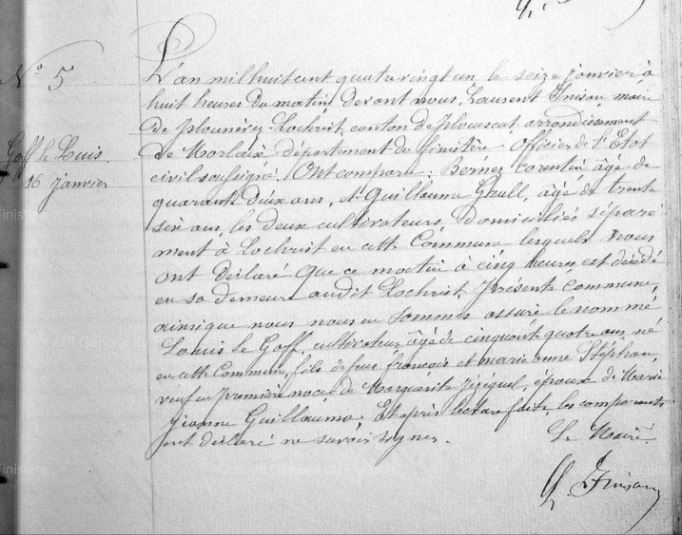 N° 5
Goff Le Louis
16 janvier
L'an mil huit cent quatre vingt un le seize janvier à
huit heures du matin devant nous, Laurent Inisan, maire
de Plounévez Lochrist, canton de Plouescat, arrondissement
de Morlaix département du Finistère Officier de l'Etat
civil soussigné, Ont comparu : Corentin âgé de
quarante deux ans, et Guillaume Grall, âgé de trente
six ans, les deux cultivateurs, domiciliés séparé
ment à Lochrist en cette Commune lesquels nous
ont déclaré que ce matin à cinq heures est décédé
en sa demeure audit Lochrist, présente commune,
ainsi que nous nous en sommes assuré le nommé
Louis Le Goff, cultivateur âgé de cinquante quatre ans, né
en cette Commune, fils de feus francois et marie anne Stéphan,
veuf en première noces de Marguerite époux de Marie
jeanne Guillaume. Et après lecture faite, les comparants
ont déclaré ne savoir signer.
Le Maire
L. Inisan